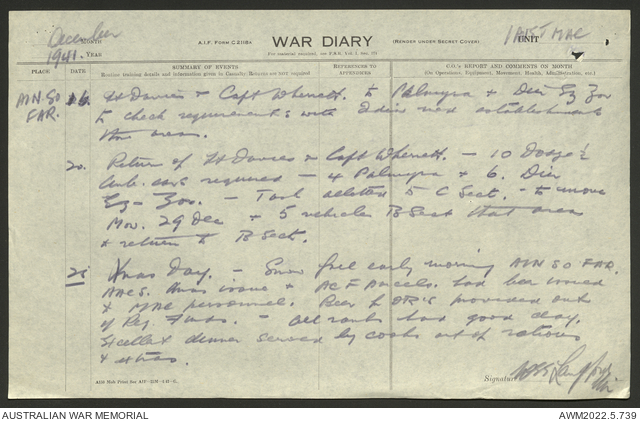 December MONTH
1941. YEAR
A.I.F. FORM C2118A
WAR DIARY
(RENDER UNDER SECRET COVER)
UNIT
MAC
PLACE
DATE
SUMMARY OF EVENTS
Routine training details and information given in Casualty Returns are NOT required
REFERENCES TO APPENDICES
C.O.'s REPORT AND COMMENTS ON MONTH
(On Operations, Equipment, Movement, Health, Administration, etc.)
AIN SO FAR.
16. Lt Davies & Capt to Palmyra & Deir Ez Zor
to check requirements with establishments
area.
20. Return of Lt Davies & Capt — 10 Dodge ½
Amb. cars required — 4 Palmyra & 6. Deir
Ez-Zor. — Task allotted to C Sect. — to move
Mov. 29 Dec & 5 vehicles B Sect that area
& return to B Sect.
25 Xmas Day. — Snow fell early morning AIN SO FAR.
Xmas issue & ACF Parcels had been issued
& MAC personnel. Beer to OR's provided out
of Reg. Funds. — All ranks had good day.
Excellent dinner served by cooks out of rations
& extras.
Signature
AUSTRALIAN WAR MEMORIAL
AWM2022.5.739